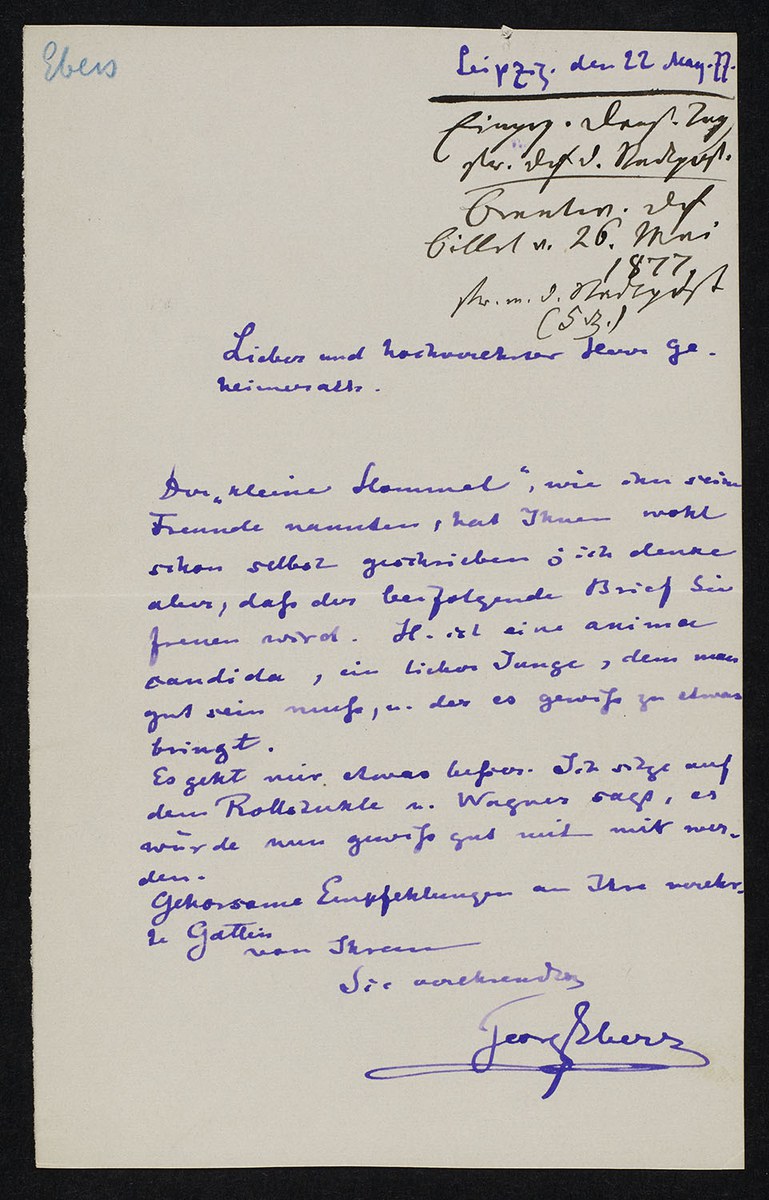 Ebers
Leipzig. den 22 May. 77.
Eingeg. Tag
d. Stadtpost.
Beantw.
Billet v. 26. Mai
1877,
m. d. Stadtpost
Lieber und hochverehrter Herr Ge-
heimerath.
Der „kleine Hommel“, wie ihn seine
Freunde nannten, hat Ihnen wohl
schon selbst geschrieben; ich denke
aber, daſs der beifolgende Brief Sie
freuen wird. H. ist eine anima
candida, ein lieber Junge, dem man
gut sein muſs, u. der es gewiſs zu etwas
bringt.
Es geht mir etwas beſser. Ich sitze auf
dem Rollstuhle u. Wagner sagt, es
würde nun gewiſs gut mit mir wer-
den.
Gehorsame Empfehlungen an Ihre verehr-
te Gattin
von Ihrem
Sie verehrenden
Georg Ebers